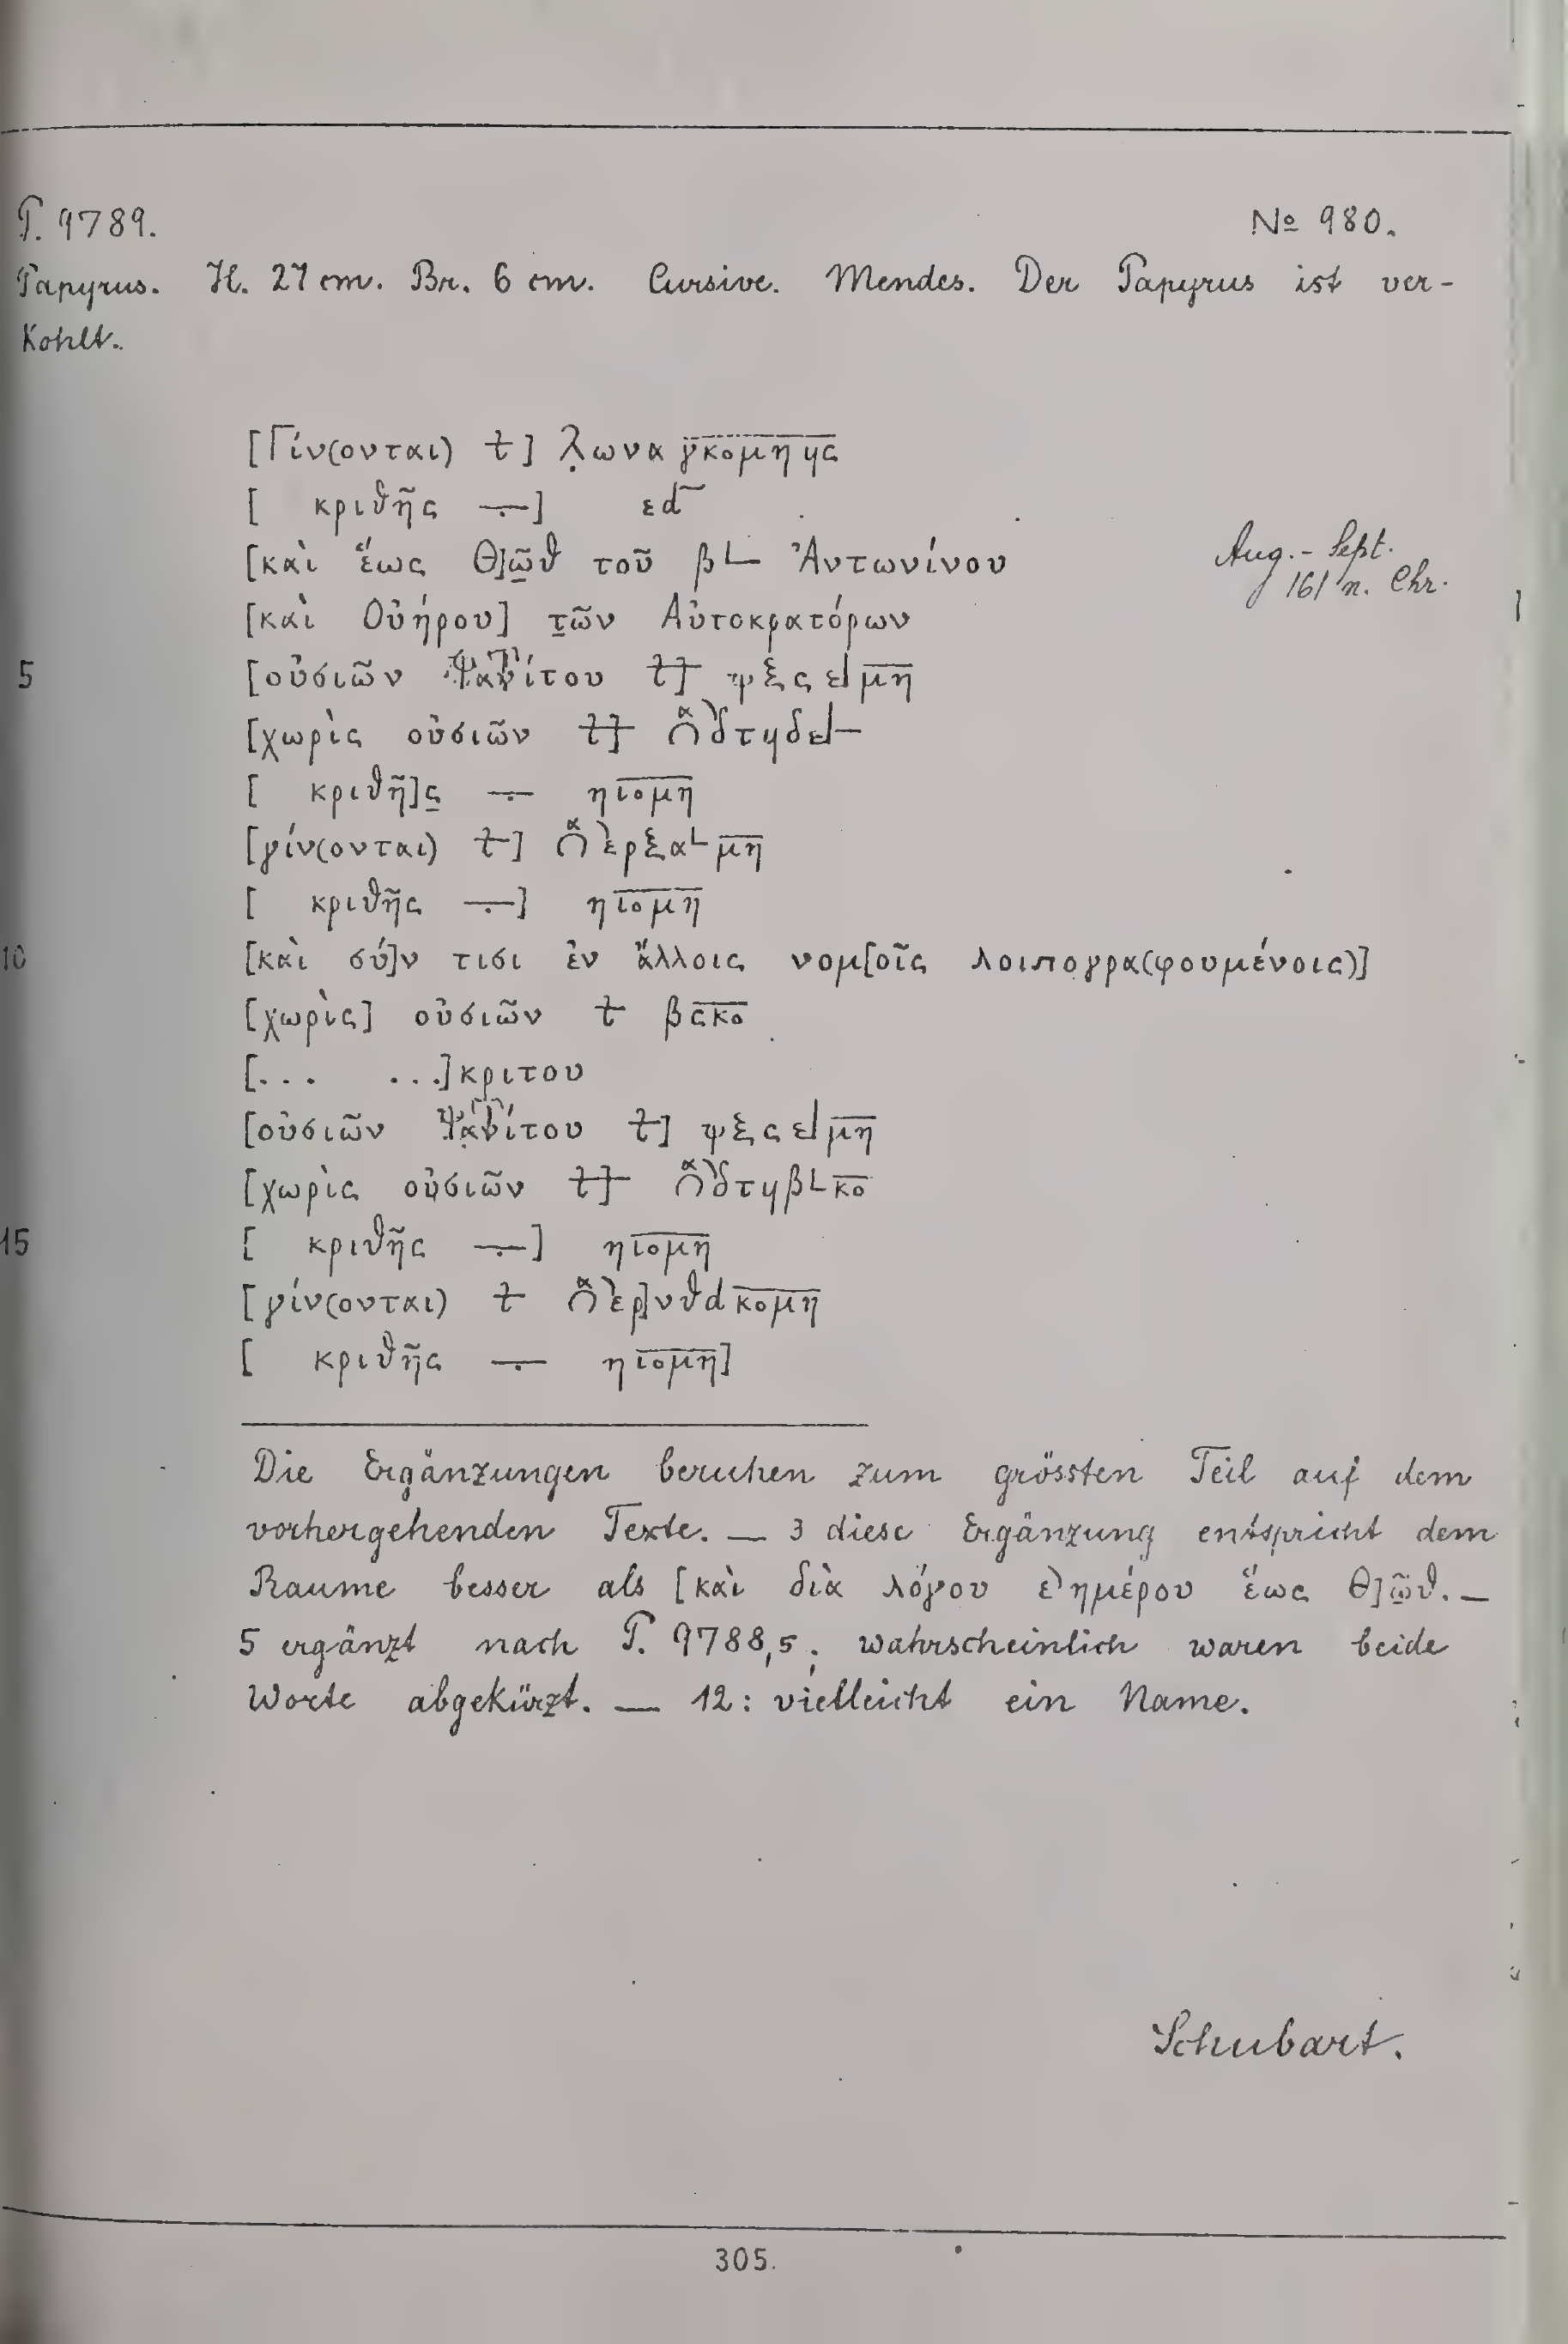 P. 9789. № 980.
Papyrus. H. 27 cm. Br. 6 cm. Cursive. Mendes. Der Papyrus ist ver-
kohlt.
[Γίν(ονται) ⲧ̶] λ̣ωνα γ̅κ̅ο̅μ̅η̅ ϥς
[ κριθῆς ⨪] εd
[καὶ ἕως Θ]ῶ̣θ τοῦ β∟ Ἀντωνίνου
Aug. - Sept.
161 n. Chr.
[καὶ Οὐήρου] τ̣ῶν Αὐτοκρατόρων
5 [οὐσιῶν ίτου ⲧ̶] ψξςε μ̅η̅
[χωρὶς οὐσιῶν ⲧ̶] δτϥδε
[ κριθῆ]ς̣ ⨪ ηι̅ο̅μ̅η̅
[γίν(ονται) ⲧ̶] ερξα∟μ̅η̅
[ κριθῆς ⨪] ηι̅ο̅μ̅η̅
10 [καὶ σύ]ν τισι ἐν ἄλλοις νομ[οῖς λοιπογρα(φουμένοις)]
[χωρὶς] οὐσιῶν ⲧ̶ βς̅κ̅ο̅
[... ...]κριτου
[οὐσιῶν ίτου ⲧ̶] ψξςε μ̅η̅
[χωρὶς οὐσιῶν ⲧ̶] δτϥβ∟κ̅ο̅
15 [ κριθῆς ⨪] ηι̅ο̅μ̅η̅
[γίν(ονται) ⲧ̶ ερ]νθdκ̅ο̅μ̅η̅
[ κριθῆς ⨪ ηι̅ο̅μ̅η̅]
Die Ergänzungen beruhen zum grössten Teil auf dem
vorhergehenden Texte. — 3 diese Ergänzung entspricht dem
Raume besser als [καὶ διὰ λόγου ἐ̓ημέρου ἕως Θ]ῶ̣θ. —
5 ergänzt nach P. 9788,5; wahrscheinlich waren beide
Worte abgekürzt. — 12: vielleicht ein Name.
Schubart.
305.